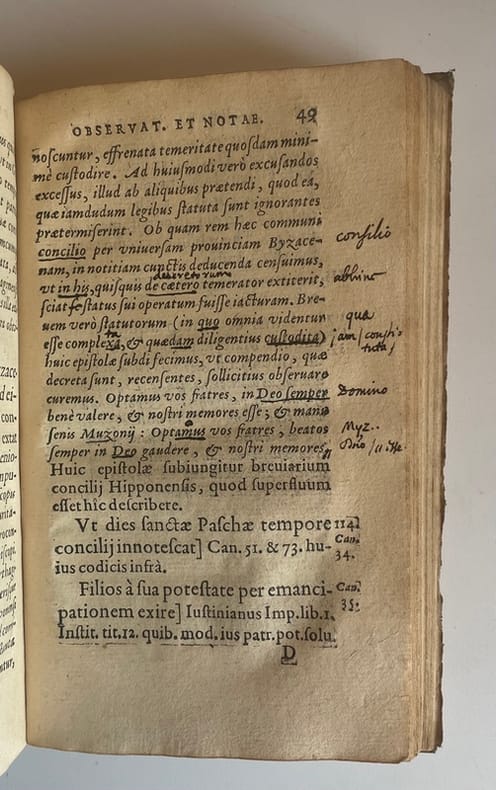 OBSERVAT. ET NOTAE. 49
noscuntur, effrenata temeritate quosdam mini-
mè custodire. Ad huiusmodi verò excusandos
excessus, illud ab aliquibus prætendi, quod ea,
quæ iamdudum legibus statuta sunt ignorantes
prætermiserint. Ob quam rem hæc communi
concilio per vniuersam prouinciam Byzace- consilio
nam, in notitiam cunctis deducenda censuimus,
decretorum
vt in his, quisquis de cætero temerator extiterit, abhinc
sciat se status sui operatum fuisse iacturam. Bre-
uem verò statutorum (in quo omnia videntur qua
esse complexa, & quædam diligentius custodita) jam/
huic epistolæ subdi fecimus, vt compendio, quæ
decreta sunt, recensentes, sollicitius obseruare
curemus. Optamus vos fratres, in Deo semper Domino
benè valere, & nostri memores esse; & manu
senis Muzonij: Optamus vos fratres, beatos Myz.
semper in Deo gaudere, & nostri memores,
Huic epistolæ subiungitur breuiarium
concilij Hipponensis, quod superfluum
esset hîc describere.
Vt dies sanctæ Paschæ tempore 114.
concilij innotescat] Can. 51. & 73. hu- Can.
ius codicis infrà. 34.
Filios à sua potestate per emanci- Can.
pationem exire] Iustinianus Imp. lib. 1. 35.
Instit. tit. 12. quib. mod. ius patr. pot. solu.
D